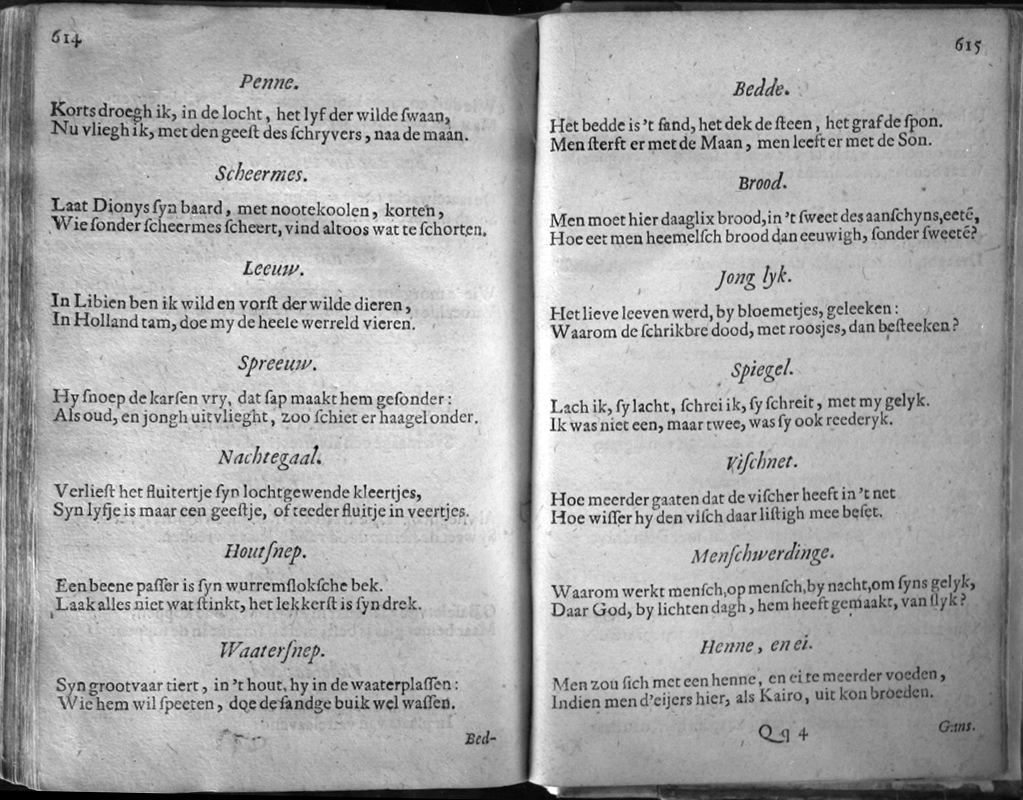 614
Penne.
Korts droegh ik, in de locht, het lyf der wilde ſwaan,
Nu vliegh ik, met den geeſt des ſchryvers, naa de maan.
Scheermes.
Laat Dionys ſyn baard, met nootekoolen, korten,
Wie ſonder ſcheermes ſcheert, vind altoos wat te ſchorten.
Leeuw.
In Libien ben ik wild en vorſt der wilde dieren,
In Holland tam, doe my de heele werreld vieren.
Spreeuw.
Hy ſnoep de karſen vry, dat ſap maakt hem geſonder:
Als oud, en jongh uitvlieght, zoo ſchiet er haagel onder.
Nachtegaal.
Verlieſt het fluitertje ſyn lochtgewende kleertjes,
Syn lyfje is maar een geeſtje, of teeder fluitje in veertjes.
Houtſnep.
Een beene paſſer is ſyn wurremſlokſche bek.
Laak alles niet wat ſtinkt, het lekkerſt is ſyn drek.
Waaterſnep.
Syn grootvaar tiert, in 't hout, hy in de waaterplaſſen:
Wie hem wil ſpeeten, doe de ſandge buik wel waſſen.
Bed-
615
Bedde.
Het bedde is 't ſand, het dek de ſteen, het graf de ſpon.
Men ſterft er met de Maan, men leeft er met de Son.
Brood.
Men moet hier daaglix brood, in 't ſweet des aanſchyns, eetē,
Hoe eet men heemelſch brood dan eeuwigh, ſonder ſweetē?
Jong lyk.
Het lieve leeven werd, by bloemetjes, geleeken:
Waarom de ſchrikbre dood, met roosjes, dan beſteeken?
Spiegel.
Lach ik, ſy lacht, ſchrei ik, ſy ſchreit, met my gelyk.
Ik was niet een, maar twee, was ſy ook reederyk.
Viſchnet.
Hoe meerder gaaten dat de viſcher heeft in 't net
Hoe wiſſer hy den viſch daar liſtigh mee beſet.
Menſchwerdinge.
Waarom werkt menſch, op menſch, by nacht, om ſyns gelyk,
Daar God, by lichten dagh, hem heeft gemaakt, van ſlyk?
Henne, en ei.
Men zou ſich met een henne, en ei te meerder voeden,
Indien men d'eijers hier, als Kairo, uit kon broeden.
Qq 4
Gans.